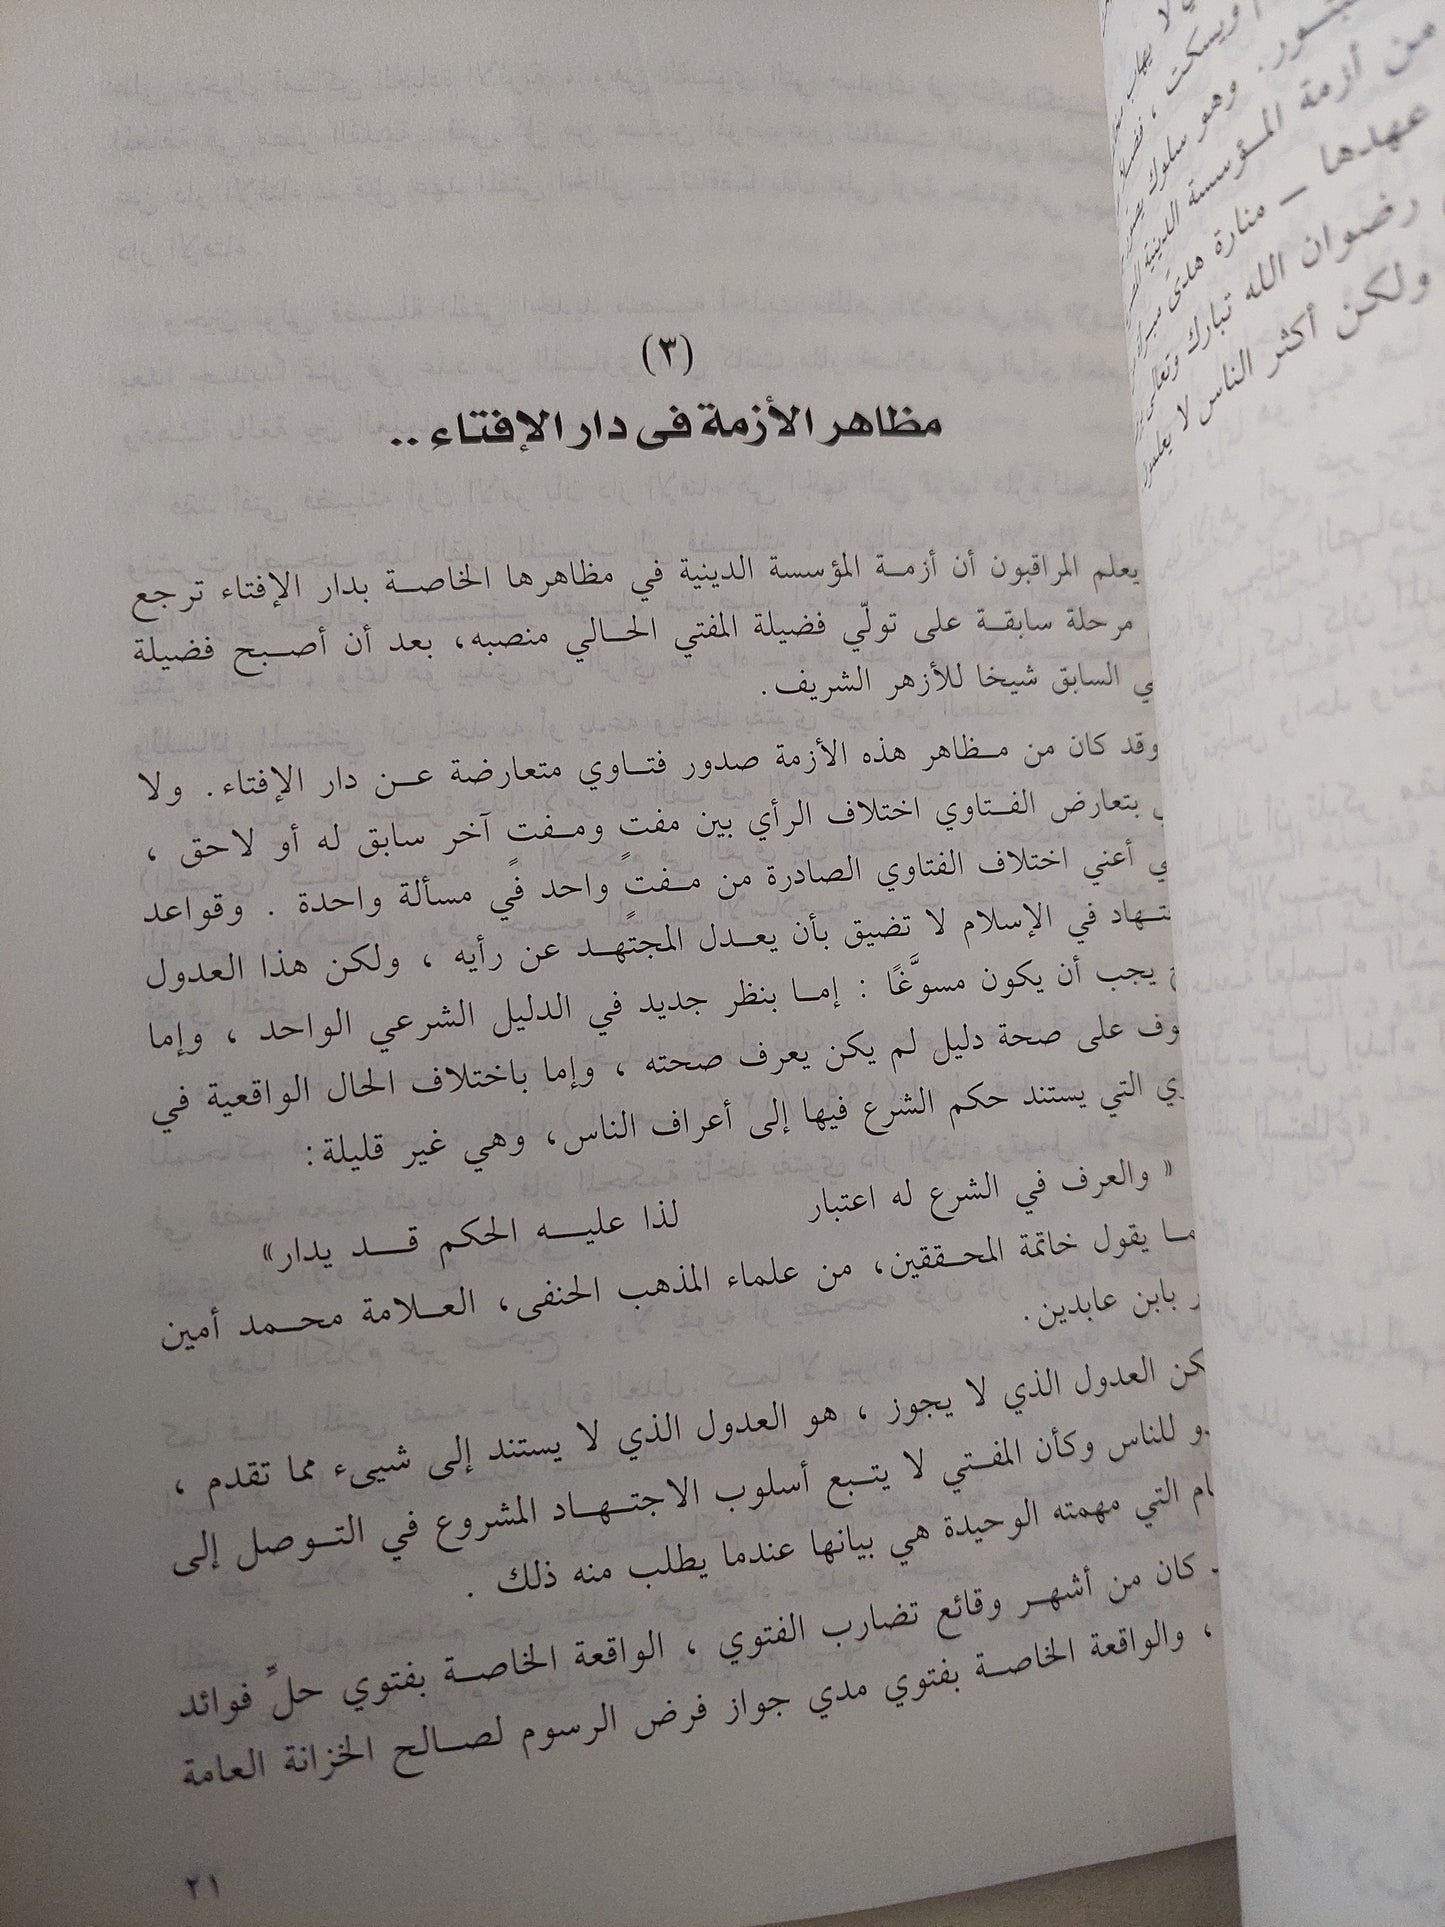 (٣)
مظاهر الأزمة فى دار الإفتاء ..
يعلم المراقبون أن أزمة المؤسسة الدينية في مظاهرها الخاصة بدار الإفتاء ترجع
مرحلة سابقة على تولّي فضيلة المفتي الحالي منصبه، بعد أن أصبح فضيلة
السابق شيخا للأزهر الشريف.
وقد كان من مظاهر هذه الأزمة صدور فتاوي متعارضة عن دار الإفتاء. ولا
بتعارض الفتاوي اختلاف الرأي بين مفتٍ ومفتٍ آخر سابق له أو لاحق ،
أعني اختلاف الفتاوي الصادرة من مفتٍ واحد في مسألة واحدة . وقواعد
في الإسلام لا تضيق بأن يعدل المجتهد عن رأيه ، ولكن هذا العدول
يجب أن يكون مسوَّغًا : إما بنظر جديد في الدليل الشرعي الواحد ، وإما
على صحة دليل لم يكن يعرف صحته ، وإما باختلاف الحال الواقعية في
التي يستند حكم الشرع فيها إلى أعراف الناس، وهي غير قليلة:
« والعرف في الشرع له اعتبار لذا عليه الحكم قد يدار»
يقول خاتمة المحققين، من علماء المذهب الحنفى، العلامة محمد أمين
بابن عابدين.
العدول الذي لا يجوز ، هو العدول الذي لا يستند إلى شييء مما تقدم ،
للناس وكأن المفتي لا يتبع أسلوب الاجتهاد المشروع في التوصل إلى
التي مهمته الوحيدة هي بيانها عندما يطلب منه ذلك .
كان من أشهر وقائع تضارب الفتوي ، الواقعة الخاصة بفتوي حلِّ فوائد
، والواقعة الخاصة بفتوي مدي جواز فرض الرسوم لصالح الخزانة العامة
٢١
لا يهاب
ويسكت ،
وهو سلوك
من أزمة المؤسسة الدينية
عهدها – منارة هدى
رضوان الله تبارك وتعالى
ولكن أكثر الناس لا